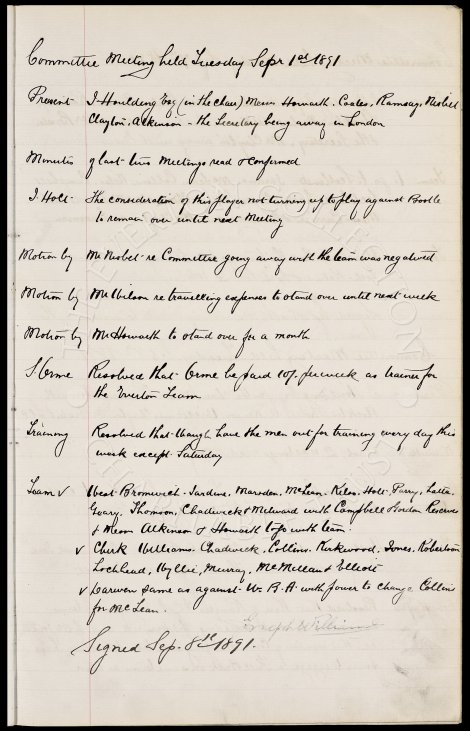 Committee Meeting held Tuesday Sepr 1st 1891
Present J Houlding Esq (in the chair) Messrs Howarth, Coates, Ramsay, Nisbet
Clayton, Atkinson - the Secretary being away in London
Minutes of last two Meetings read & confirmed
J Holt - The consideration of this player not turning up to play against Bootle
to remain over until next Meeting
Motion by Mr Nisbet - re Committee going away with the team was negatived
Motion by Mr Wilson re travelling expenses to stand over until next week
Motion by Mr Howarth to stand over for a month
S Orme Resolved that Orme be paid 10/- per week as trainer for
the Everton Team
Training Resolved that Waugh have the men out for training every day this
week except Saturday
Team v West Bromwich. Jardine, Marsden, McLean, Kelso, Holt, Parry, Latta,
Geary, Thomson, Chadwick & Milward with Campbell & Gordon Reserves
& Messrs Atkinson & Howarth to go with team.
v Chirk Williams, Chadwick, Collins, Kirkwood, Jones, Robertson
Lochhead, Wyllie, Murray, McMillan & Elliott
v Darwen same as against W.B.A. with power to change Collins
for McLean.
Joseph Williams
Signed Sep. 8th 1891.